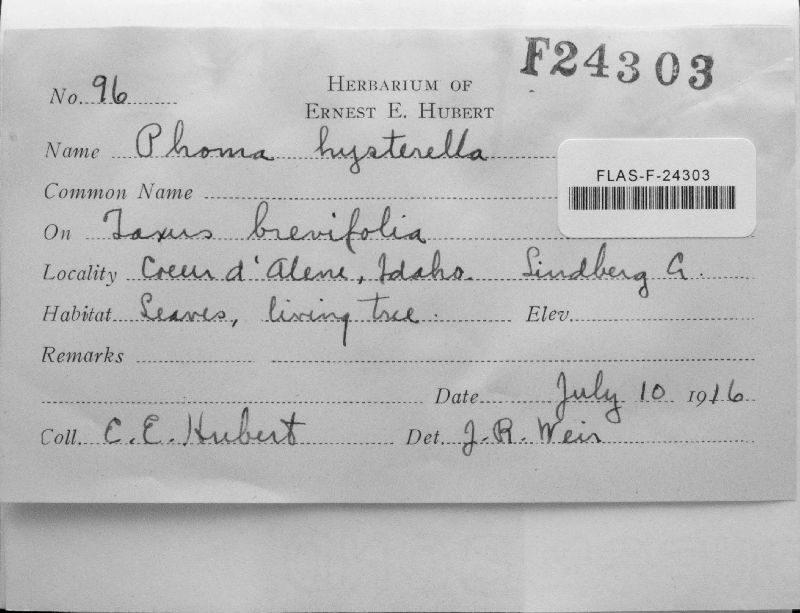 F24303
No. 96
HERBARIUM OF
ERNEST E. HUBERT
Name Phoma hysterella
FLAS-F-24303
Common Name
On Taxus brevifolia
Locality Coeur d'Alene, Idaho. Lindberg G.
Habitat Leaves, living tree. Elev.
Remarks
Date July 10 1916
Coll. E. E. Hubert Det. J. R. Weir